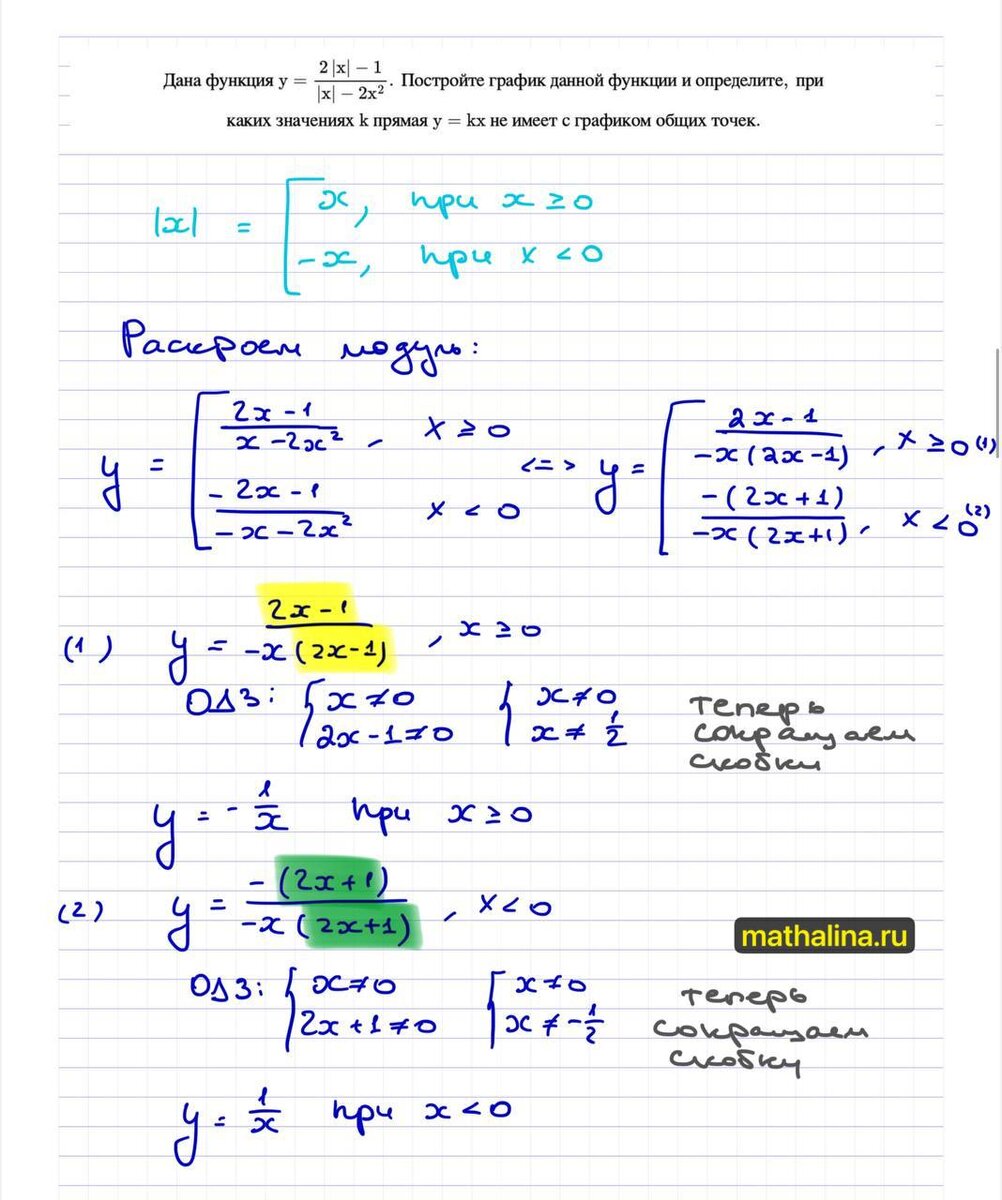 Дана функция y = \frac{2|x| − 1}{|x| − 2x²}. Постройте график данной функции и определите, при
каких значениях k прямая y = kx не имеет с графиком общих точек.
|x| = [ x, при x ≥ 0
-x, при x < 0
Раскроем модуль:
y = [ \frac{2x - 1}{x - 2x²}, x ≥ 0 <=> y = [ \frac{2x - 1}{-x(2x-1)}, x ≥ 0 (1)
\frac{-2x - 1}{-x - 2x²} x < 0 \frac{-(2x+1)}{-x(2x+1)}, x < 0 (2)
(1) y = \frac{2x-1}{-x(2x-1)}, x ≥ 0
ОДЗ: { x ≠ 0 { x ≠ 0 теперь
2x - 1 ≠ 0 x ≠ \frac{1}{2} сокращаем
скобки
y = - \frac{1}{x} при x ≥ 0
(2) y = \frac{-(2x+1)}{-x(2x+1)}, x < 0
mathalina.ru
ОДЗ: { x ≠ 0 { x ≠ 0 теперь
2x + 1 ≠ 0 x ≠ -\frac{1}{2} сокращаем
скобку
y = \frac{1}{x} при x < 0